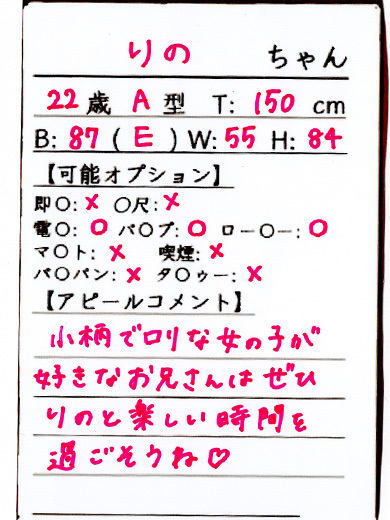 りの ちゃん
22歳 A型 T: 150 cm
B: 87 ( E ) W: 55 H: 84
【可能オプション】
即〇: × 〇尺: ×
電〇: 〇 バ〇ブ: 〇 ロー〇ー: 〇
マ〇ト: × 喫煙: ×
パ〇パン: × タ〇ゥー: ×
【アピールコメント】
小柄でロリな女の子が
好きなお兄さんはぜひ
りのと楽しい時間を
過ごそうね♡